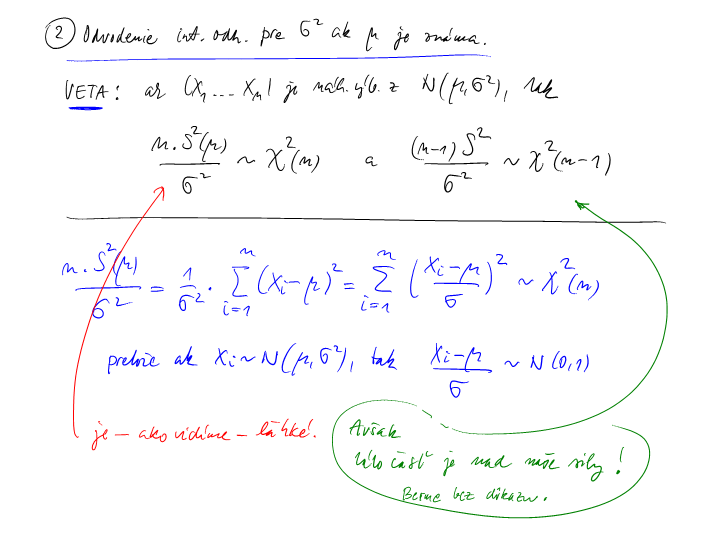 ② Odvodenie int. odh. pre σ² ak μ je známa.
VETA: ak (X₁ ... Xₙ) je náh. výb. z N(μ,σ²), tak
n.S²(μ)/σ² ~ χ²(n) a (n-1)S²/σ² ~ χ²(n-1)
n.S²(μ)/σ² = 1/σ² · ∑ᵢ₌₁ⁿ (Xᵢ-μ)² = ∑ᵢ₌₁ⁿ ((Xᵢ-μ)/σ)² ~ χ²(n)
pretože ak Xᵢ ~ N(μ,σ²), tak (Xᵢ-μ)/σ ~ N(0,1)
je – ako vidíme – ľahké!
Avšak
táto časť je nad naše sily!
Berme bez dôkazu.